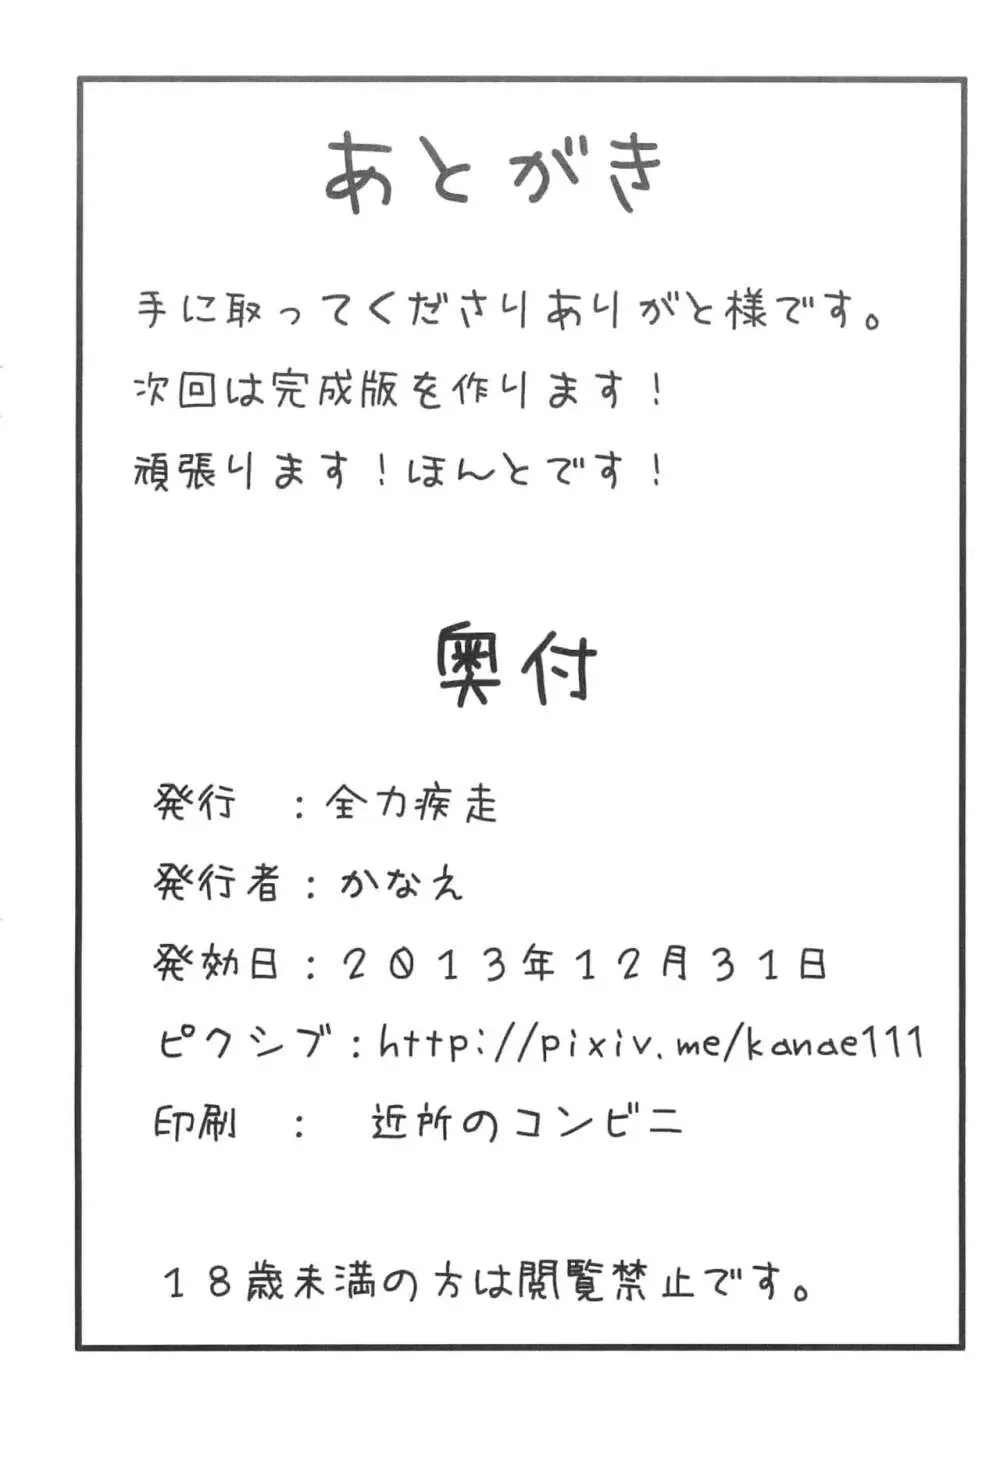 あとがき
手に取ってくださりありがと様です。
次回は完成版を作ります!
頑張ります!ほんとです!
奥付
発行　:全力疾走
発行者:かなえ
発効日:2013年12月31日
ピクシブ:http://pixiv.me/kanae111
印刷　:　近所のコンビニ
18歳未満の方は閲覧禁止です。